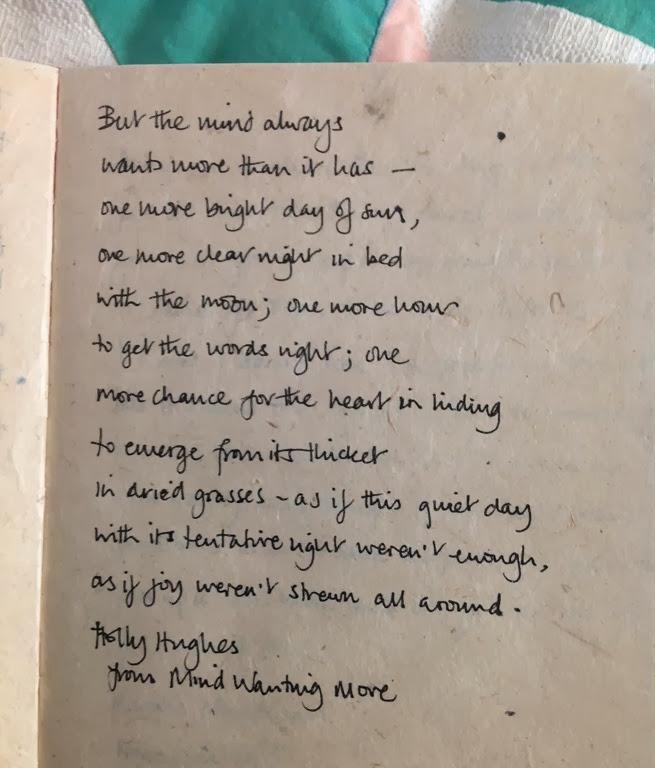 But the mind always
wants more than it has —
one more bright day of sun,
one more clear night in bed
with the moon; one more hour
to get the words right; one
more chance for the heart in hiding
to emerge from its thicket
in dried grasses - as if this quiet day
with its tentative light weren't enough,
as if joy weren't strewn all around.
Holly Hughes
from Mind Wanting More